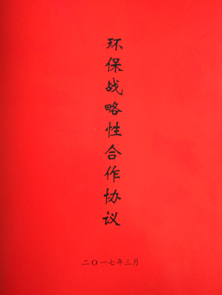 环保战略性合作协议
二〇一七年三月